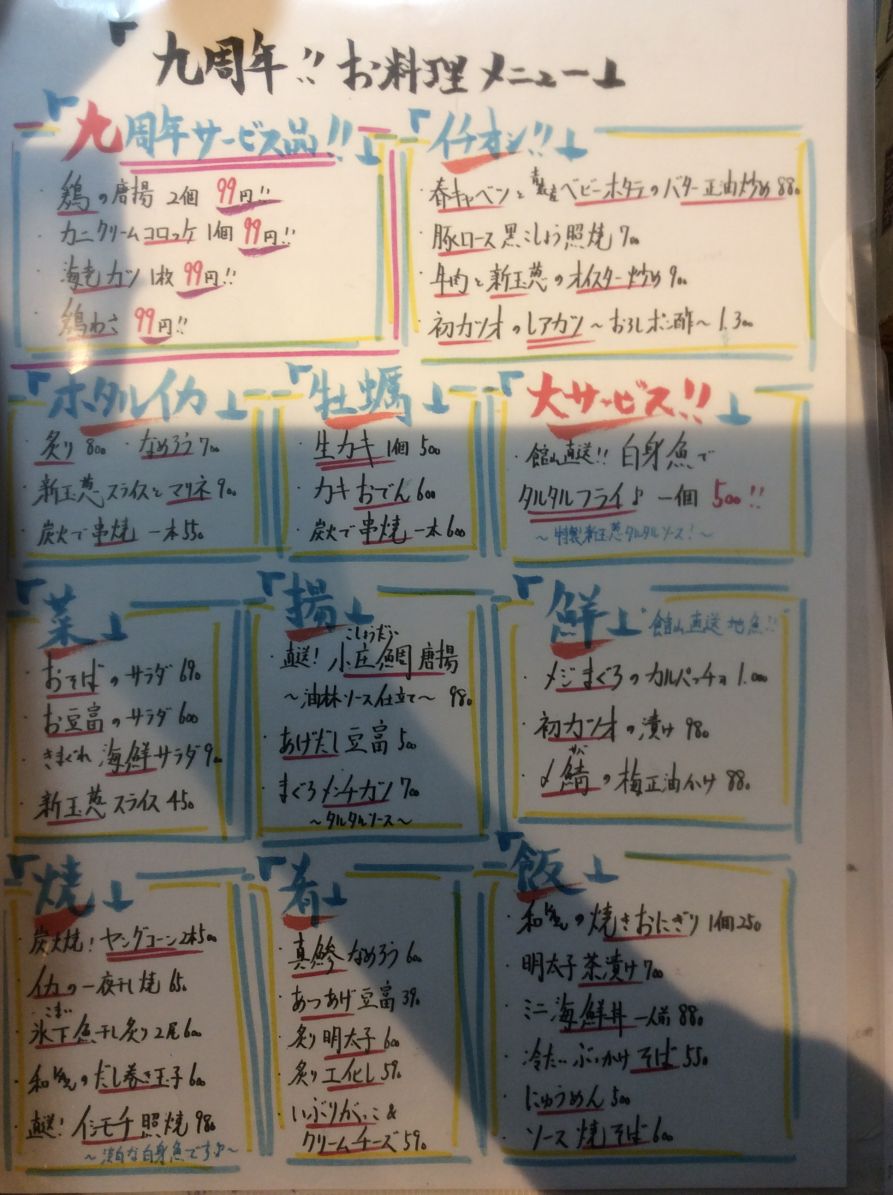 「九周年!! お料理メニュー」
「九周年サービス品!!」
・鶏の唐揚 2個 99円!!
・カニクリームコロッケ 1個 99円!!
・海老カツ 1枚 99円!!
・鶏わさ 99円!!
「イチオシ!!」
・春キャベツと青森産ベビーホタテのバター正油炒め 880
・豚ロース黒こしょう照焼 700
・牛肉と新玉葱のオイスター炒め 900
・初カツオのレアカツ〜おろしポン酢〜 1.300
「ホタルイカ」
・炙り 800 ・なめろう 700
・新玉葱スライスとマリネ 900
・炭火で串焼 一本 550
「牡蠣」
・生カキ 1個 500
・カキおでん 600
・炭火で串焼 一本 600
「大サービス!!」
・館山直送!! 白身魚で
タルタルフライ♪ 一個 500!!
〜特製新玉葱タルタルソース!〜
「菜」
・おそばのサラダ 690
・お豆富のサラダ 600
・きまぐれ海鮮サラダ 900
・新玉葱スライス 450
「揚」
こしょうだい
・直送! 小庄鯛唐揚
〜油林ソース仕立て〜 980
・あげだし豆富 500
・まぐろメンチカツ 700
〜タルタルソース〜
「鮮」 館山直送 地魚!!
・メジまぐろのカルパッチョ 1.000
・初カツオの漬け 980
サバ
・〆鯖の梅正油かけ 880
「焼」
・炭火焼! ヤングコーン 2本 500
・イカの一夜干し焼 650
こまい
・氷下魚干し炙り 2尾 600
・だし巻き玉子 600
・直送! イシモチ照焼 980
〜淡白な白身魚です♪〜
「肴」
・真鯵なめろう 600
・あつあげ豆富 390
・炙り明太子 600
・炙りエイヒレ 590
・いぶりがっこ&
クリームチーズ 590
「飯」
・焼きおにぎり 1個 250
・明太子茶漬け 700
・ミニ海鮮丼 一人前 880
・冷たいぶっかけそば 550
・にゅうめん 500
・ソース焼そば 600